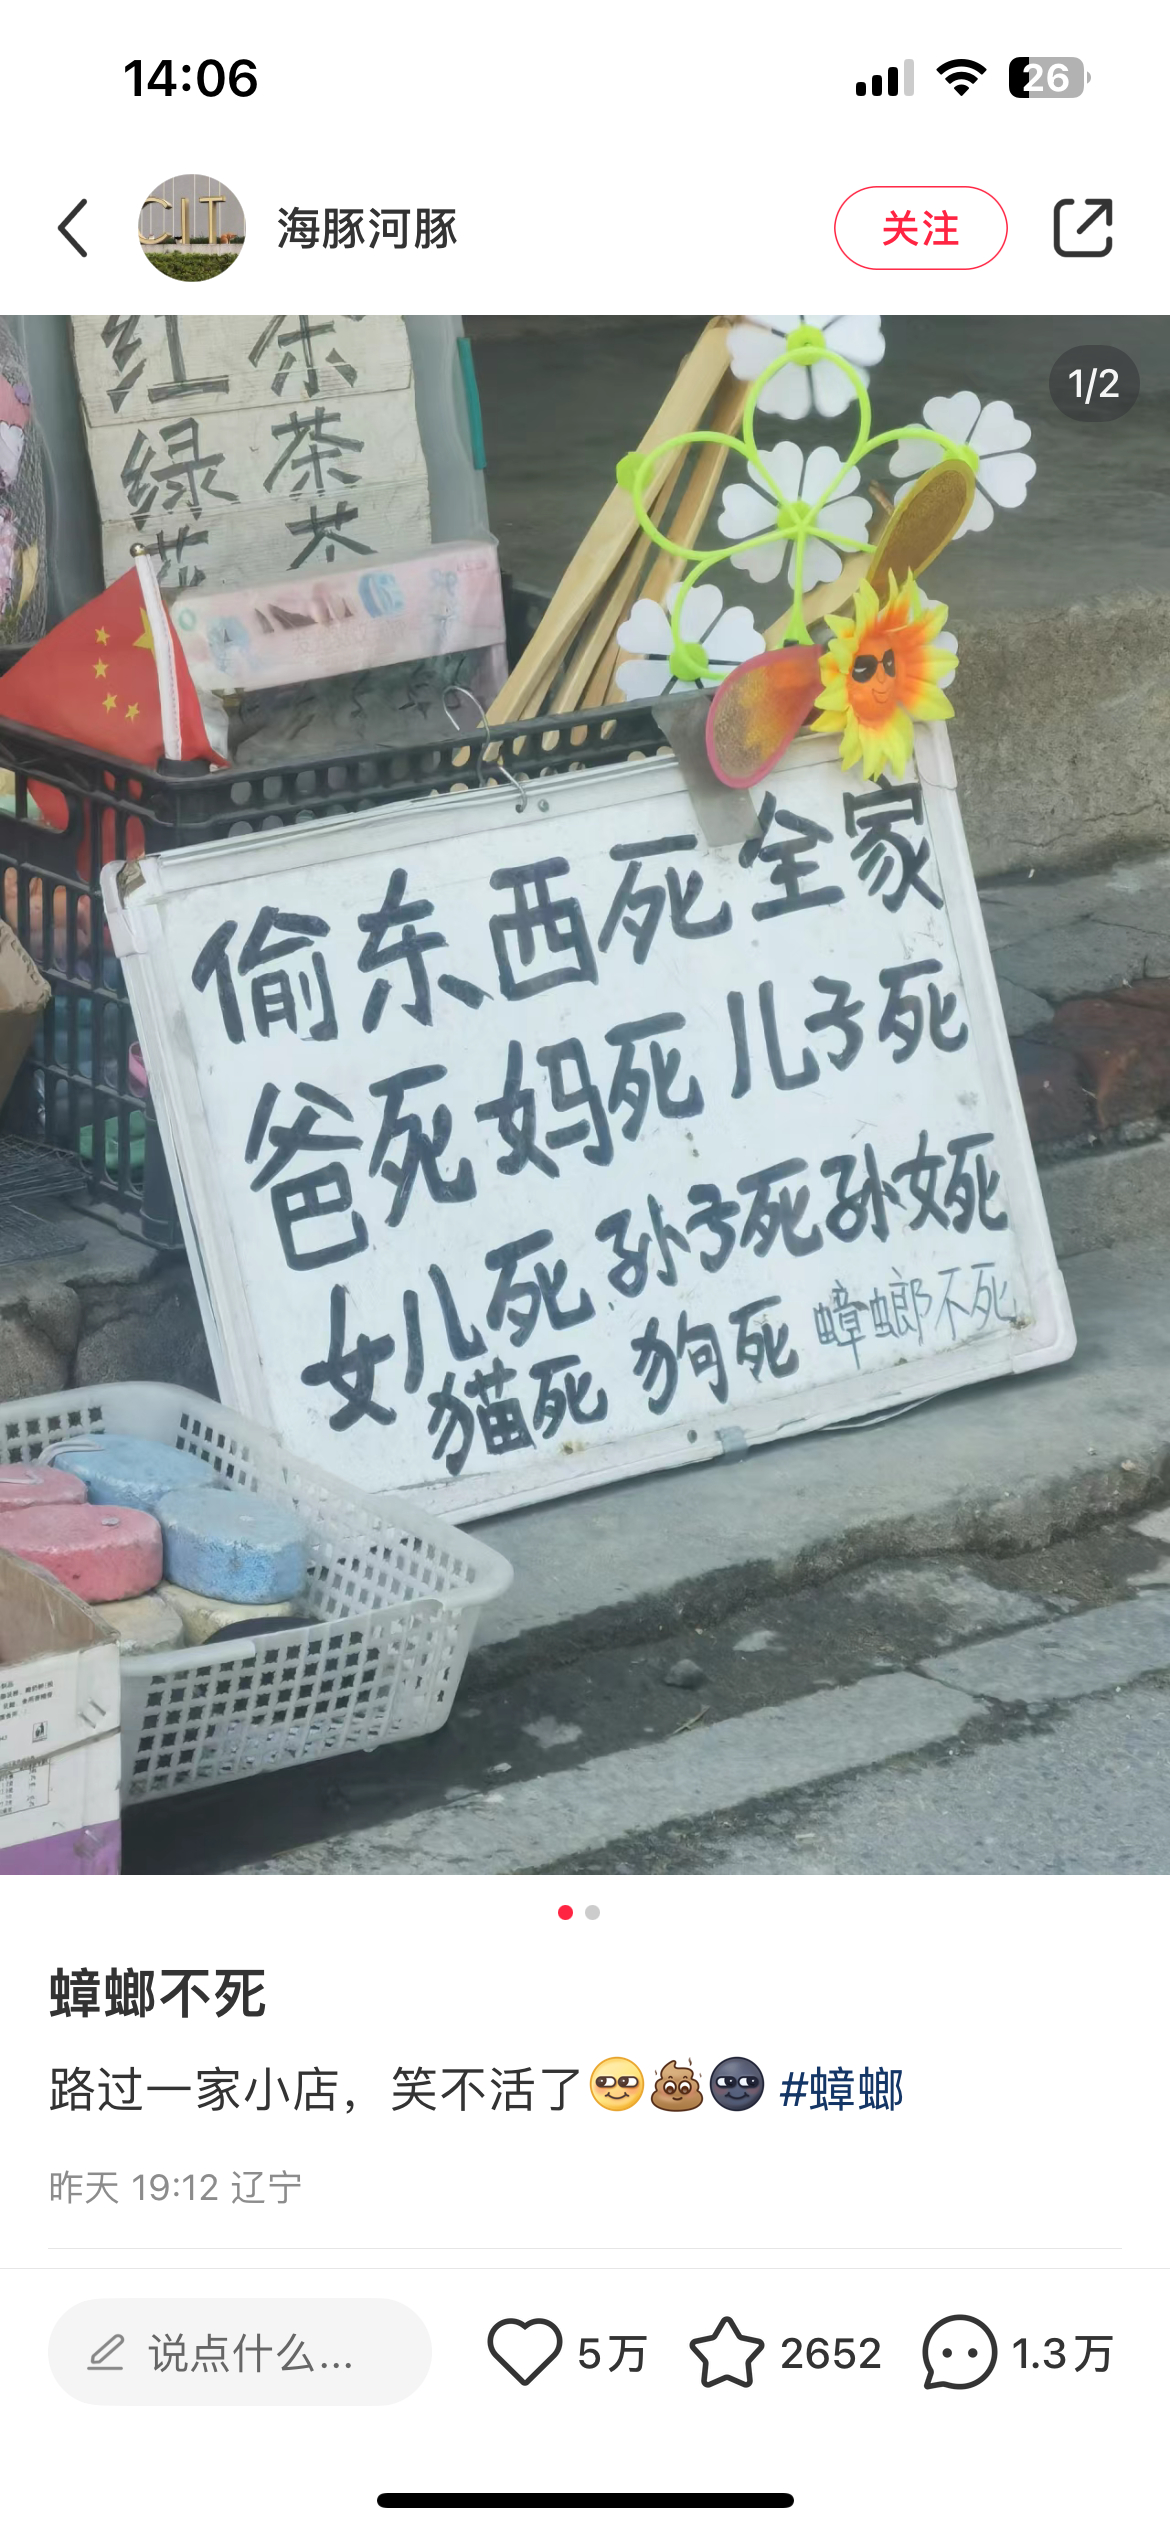 14:06
26
CIT
海豚河豚
关注
1/2
红茶
绿茶
花茶
偷东西死全家
爸死妈死儿子死
女儿死孙子死孙女死
猫死 狗死 蟑螂不死
蟑螂不死
路过一家小店，笑不活了 #蟑螂
昨天 19:12 辽宁
说点什么...
5万
2652
1.3万